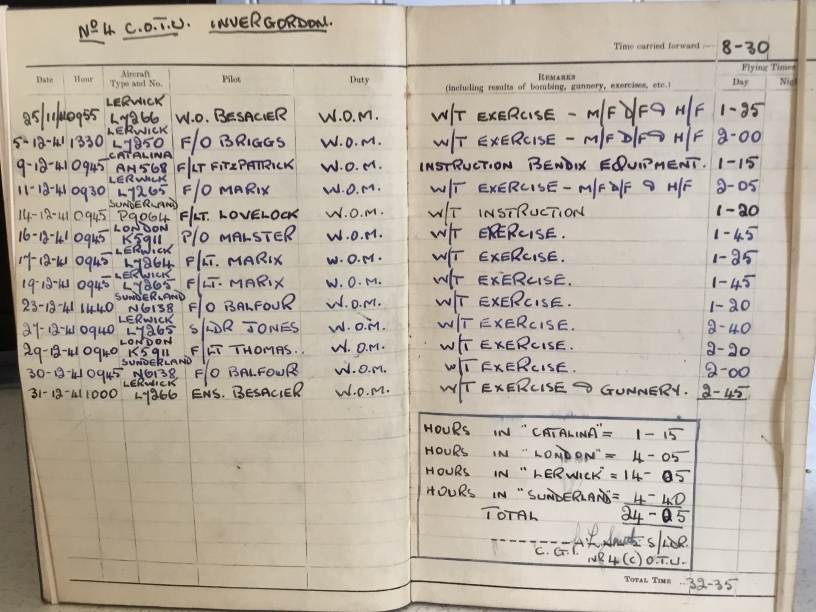 Nº 4 C.O.T.U. INVERGORDON.
Time carried forward :— 8-30
Date Hour Aircraft Type and No. Pilot Duty REMARKS (including results of bombing, gunnery, exercises, etc.) Flying Times Day Nigh
25/11/41 0955 LERWICK L7266 W.O. BESACIER W.O.M. W/T EXERCISE - M/F D/F & H/F 1-25
5-12-41 1330 LERWICK L7250 F/O BRIGGS W.O.M. W/T EXERCISE - M/F D/F & H/F 2-00
9-12-41 0945 CATALINA AH568 F/LT FITZPATRICK W.O.M. INSTRUCTION BENDIX EQUIPMENT. 1-15
11-12-41 0930 LERWICK L7265 F/O MARIX W.O.M. W/T EXERCISE - M/F D/F & H/F 2-05
14-12-41 0945 SUNDERLAND P9064 F/LT. LOVELOCK W.O.M. W/T INSTRUCTION 1-20
16-12-41 0945 LONDON K5911 P/O MALSTER W.O.M. W/T EXERCISE. 1-45
17-12-41 0945 LERWICK L7264 F/LT. MARIX W.O.M. W/T EXERCISE. 1-25
19-12-41 0945 LERWICK L7265 F/LT. MARIX W.O.M. W/T EXERCISE. 1-45
23-12-41 1440 SUNDERLAND N6138 F/O BALFOUR W.O.M. W/T EXERCISE. 1-20
27-12-41 0940 LERWICK L7265 S/LDR JONES W.O.M. W/T EXERCISE. 2-40
29-12-41 0940 LONDON K5911 F/LT THOMAS.. W.O.M. W/T EXERCISE. 2-20
30-12-41 0945 SUNDERLAND N6138 F/O BALFOUR W.O.M. W/T EXERCISE. 2-00
31-12-41 1000 LERWICK L7266 ENS. BESACIER W.O.M. W/T EXERCISE & GUNNERY. 2-45
HOURS IN "CATALINA" = 1-15
HOURS IN "LONDON" = 4-05
HOURS IN "LERWICK" = 14-05
HOURS IN "SUNDERLAND" = 4-40
TOTAL 24-05
S/LDR.
C.G.I. Nº 4 (C) O.T.U.
TOTAL TIME .. 32-35